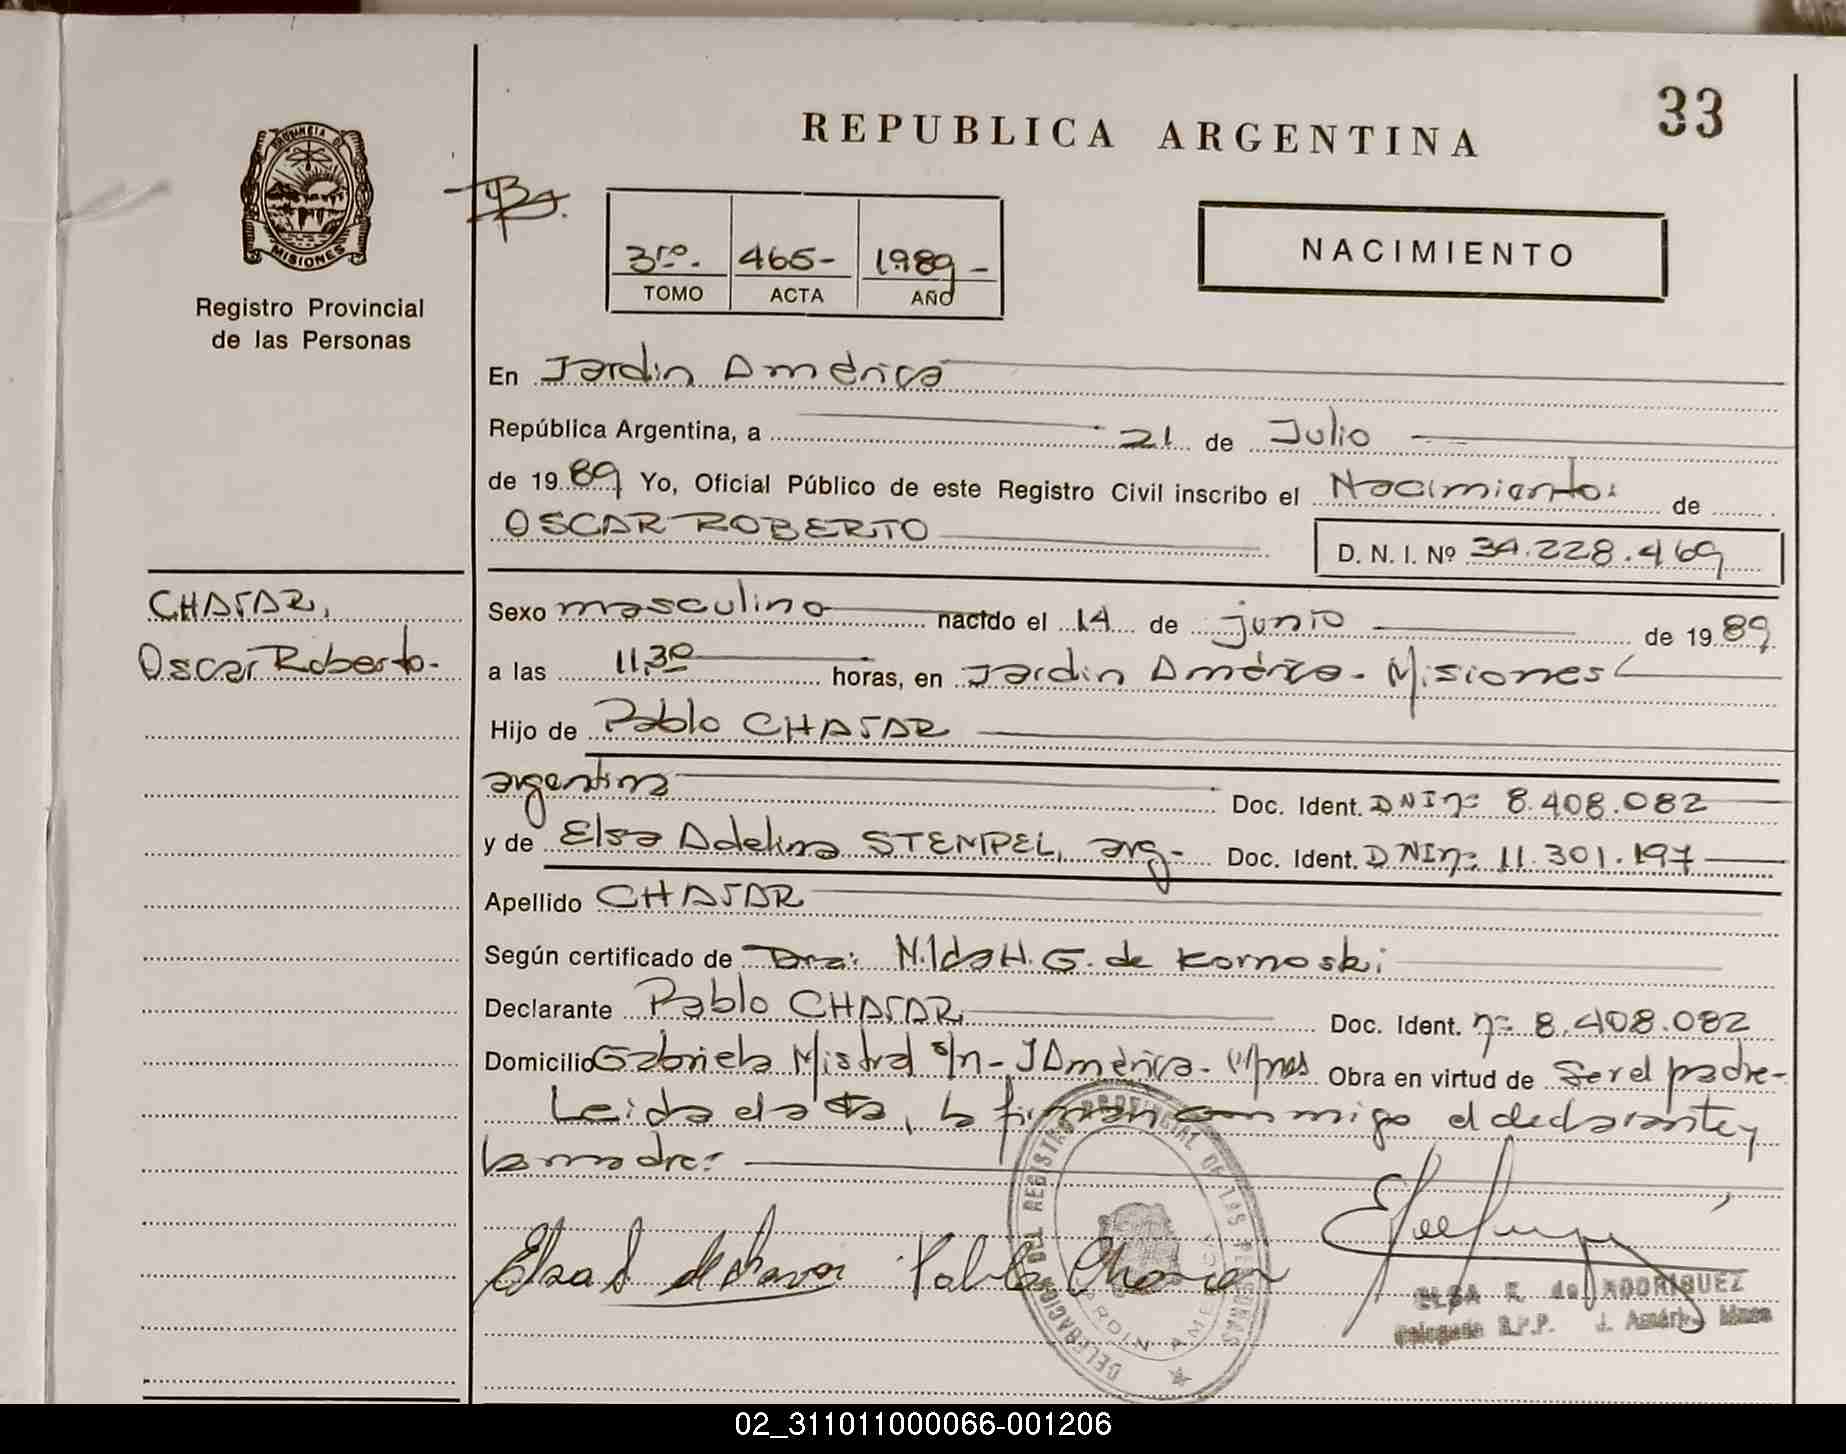 33
REPUBLICA ARGENTINA
PROVINCIA DE
MISIONES
Registro Provincial
de las Personas
3ro.- 465- 1989-
TOMO ACTA AÑO
NACIMIENTO
En Jardin América
República Argentina, a 21 de Julio
de 1989 Yo, Oficial Público de este Registro Civil inscribo el Nacimiento: de
OSCAR ROBERTO D. N. I. Nº 34.228.469
CHASAR,
Oscar Roberto.-
Sexo masculino nacido el 14 de junio de 1989
a las 11,30 horas, en Jardin América - Misiones
Hijo de Pablo CHASAR
argentino Doc. Ident. DNI nº 8.408.082
y de Elsa Adelina STEMPEL, arg- Doc. Ident. DNI nº 11.301.197
Apellido CHASAR
Según certificado de Dra: Nilda H. G. de Kornoski
Declarante Pablo CHASAR, Doc. Ident. nº 8.408.082
Domicilio Gabriela Mistral s/n - J América - Mnes Obra en virtud de Ser el padre-
Leida el acta, la firman conmigo el declarante y
la madre:
Elsa S de Chasar Pablo Chasar
DELEGACION DEL REGISTRO PROVINCIAL DE LAS PERSONAS
JARDIN AMERICA
ELSA F. de RODRIGUEZ
Delegada R.P.P. J. América Mnes
02_311011000066-001206